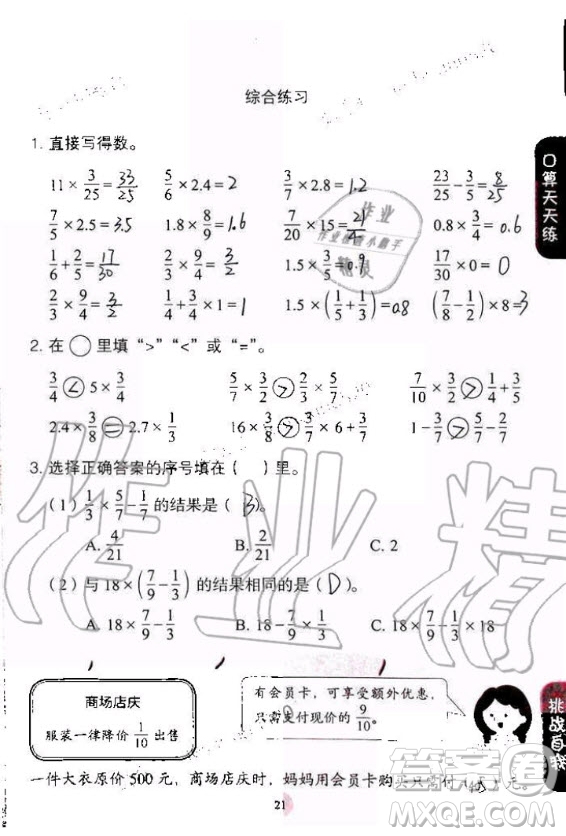 综合练习
1. 直接写得数。
11 × 3/25 = 33/25  5/6 × 2.4 = 2  3/7 × 2.8 = 1.2  23/25 − 3/5 = 8/25
7/5 × 2.5 = 3.5  1.8 × 8/9 = 1.6  7/20 × 15 = 21/4  0.8 × 3/4 = 0.6
1/6 + 2/5 = 17/30  2/3 × 9/4 =  1.5 × 3/5 = 0.9  17/30 × 0 =
2/3 × 9/4 =  × 9/11 =  1.5 × (1/5 + 1/3) = 0.8  (7/8 − 1/2) × 8 = 3
2. 在○里填“>”“<”或“=”。
3/4 < 5 × 3/4  5/7 × 3/2 > 2/3 × 5/7  7/10 × 3/2 > 1/4 + 3/5
2.4 × 3/8 = 2.7 × 1/3  16 × 3/7 > 3/7 × 6 + 3/7  1 − 3/7 > 5/7 − 2/7
3. 选择正确答案的序号填在（ ）里。
（1）1/3 × 5/7 − 1/7 的结果是（B）。
A. 4/21  B. 2/21  C. 2
（2）与 18 × (7/9 − 1/3) 的结果相同的是（D）。
A. 18 × 7/9 − 1/3  B. 18 − 7/9 × 1/3  C. 18 × 7/9 − 1/3 × 18
商场店庆
服装一律降价 1/10 出售
有会员卡，可享受额外优惠，
只需支付现价的 9/10。
一件大衣原价 500 元，商场店庆时，妈妈用会员卡购买只需付（405）元。
21
口算天天练
挑战自我
作业
作业检查小帮手
作业精
作业精灵
MXQE.COM